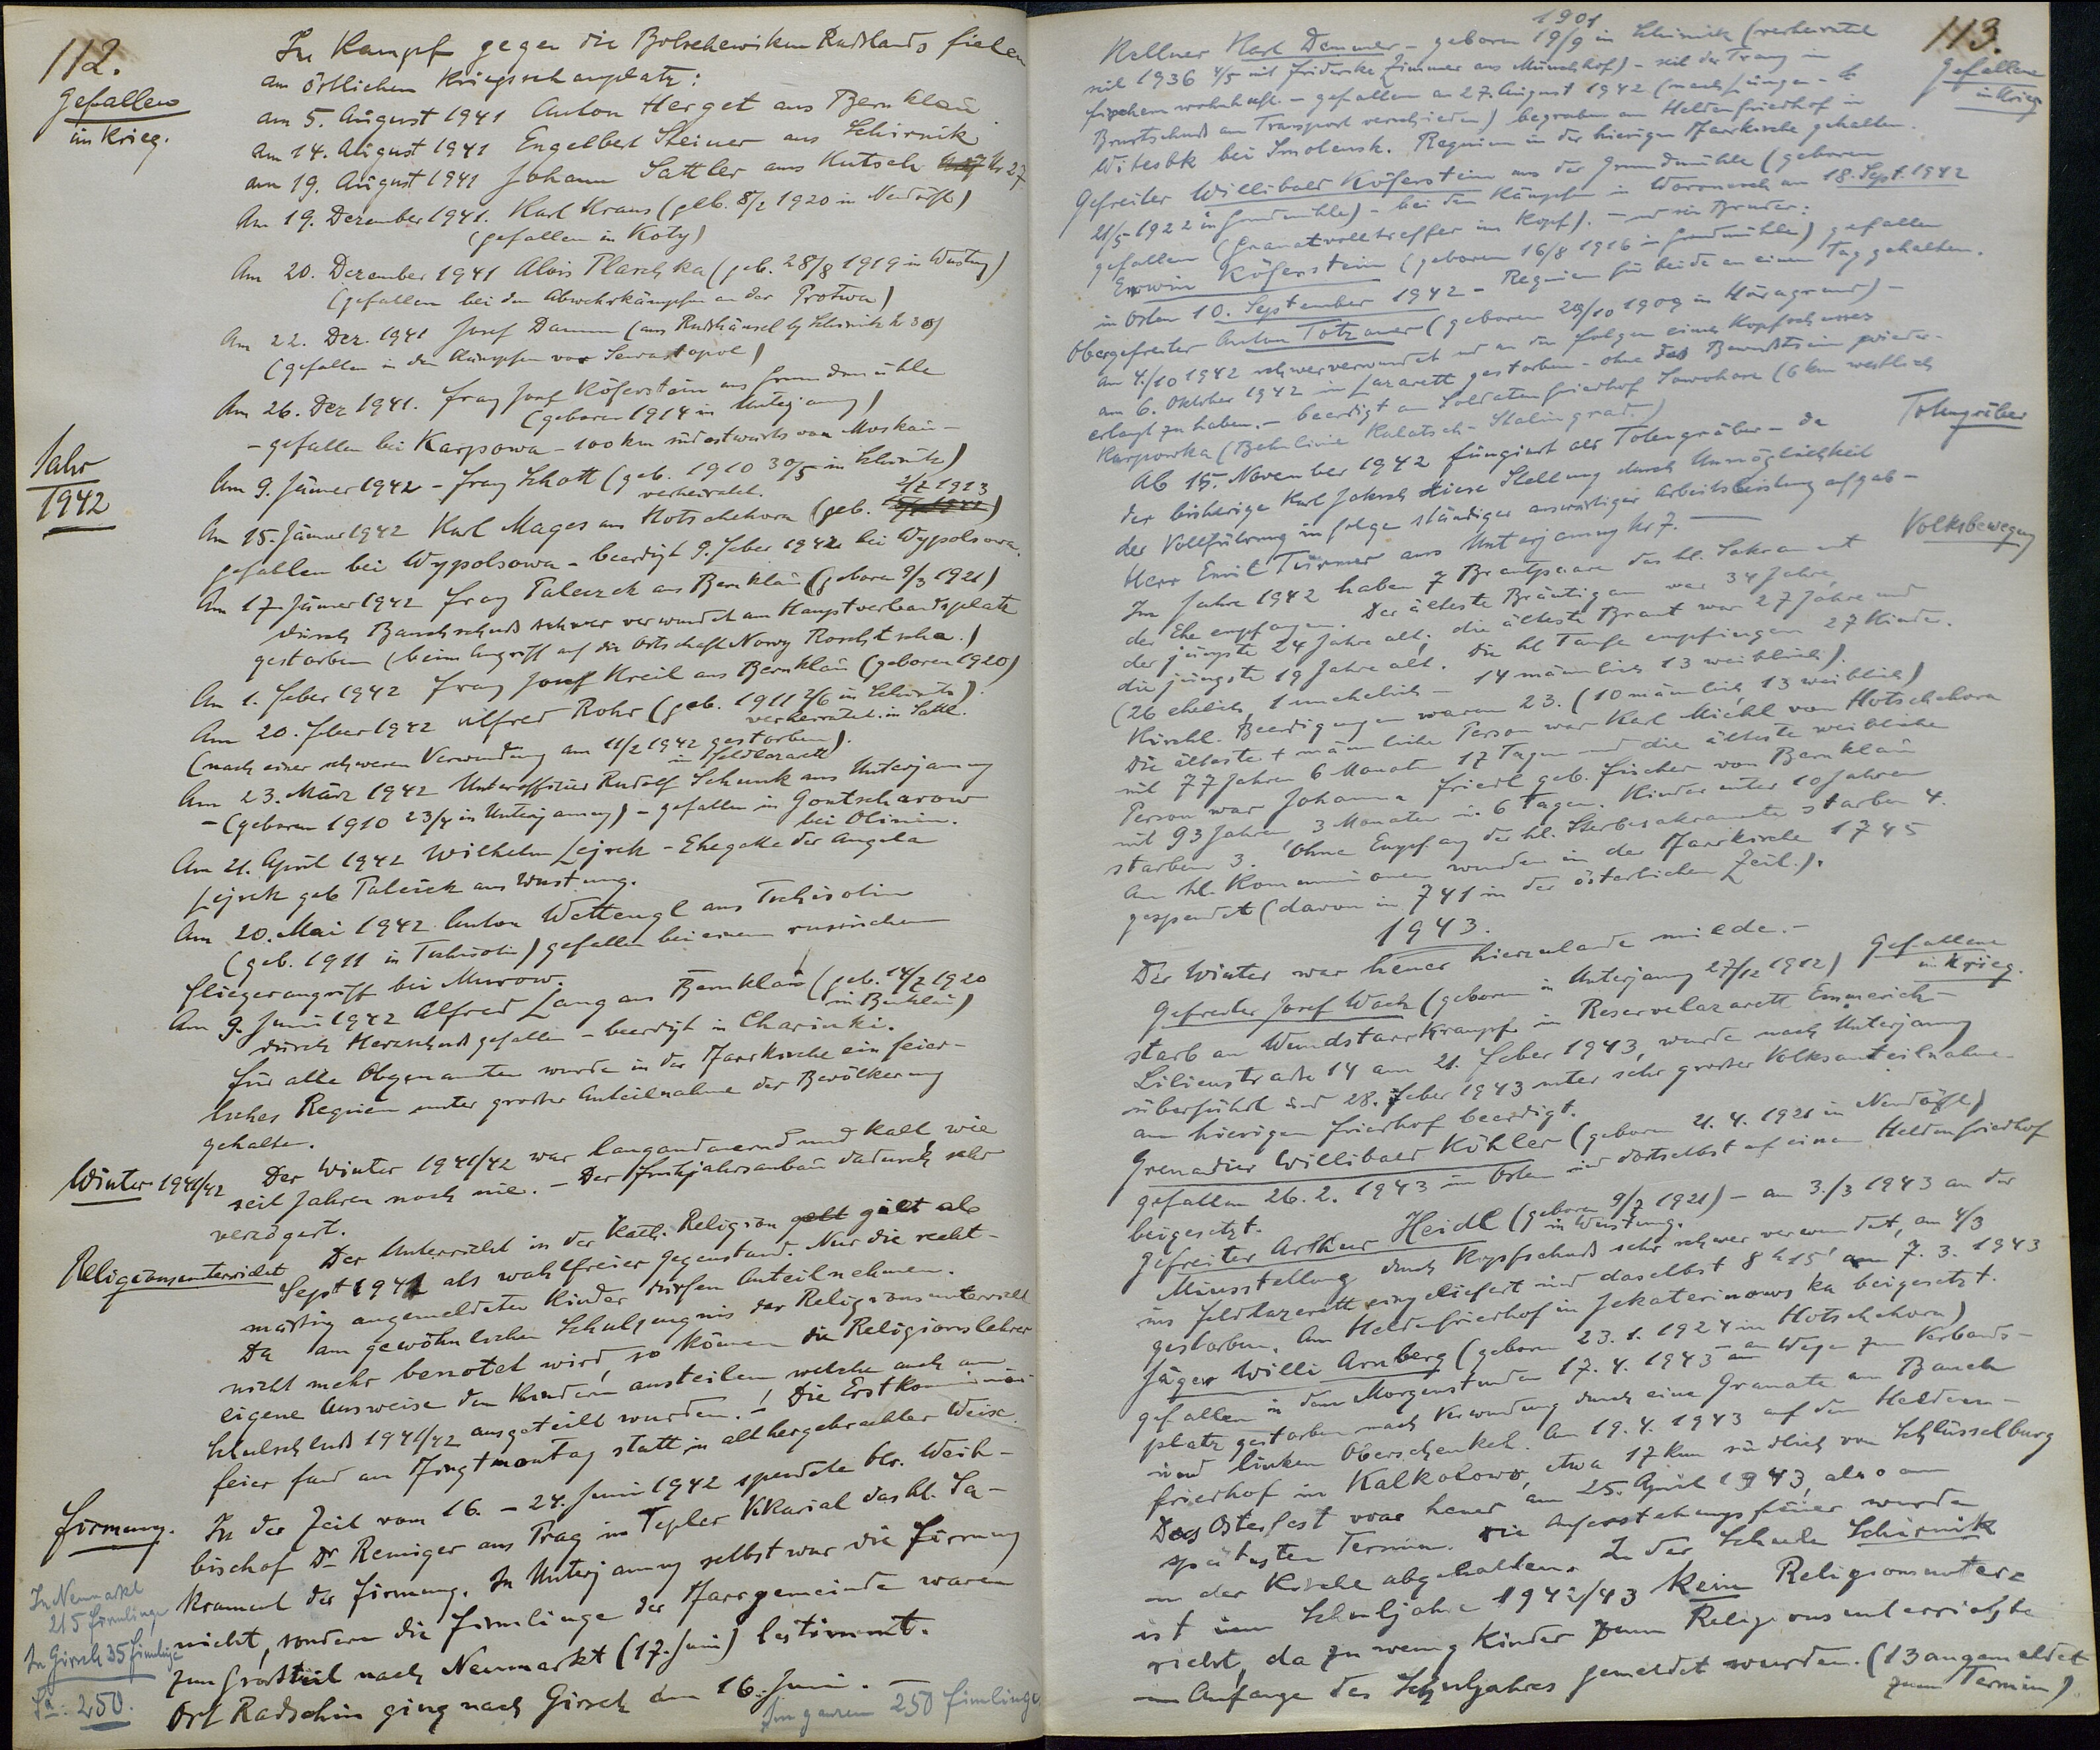 112.
Gefallen
im Krieg.
Im Kampf gegen die Bolschewiken Rußlands fielen
am östlichen Kriegsschauplatz:
am 5. August 1941 Anton Herget aus Bernklau
Am 14. August 1941 Engelbert Steiner aus Schirnik
am 19. August 1941 Johann Sattler aus Kutsch Nr 27
Am 19. Dezember 1941. Karl Kraus (geb. 8/2 1920 in Neudörfl)
(gefallen in Koty)
Am 20. Dezember 1941 Alois Plaschka (geb. 28/8 1919 in Wustung)
(gefallen bei den Abwehrkämpfen an der Protwa)
Am 22. Dez. 1941 Josef Damm (aus Rußhäusel by Schirnik Nr 30)
(gefallen in den Kämpfen vor Sewastopol)
Am 26. Dez 1941. Franz Josef Köferstein aus Grundmühle
(geboren 1914 in Unterjamny)
- gefallen bei Karpowa - 100 km südostwärts von Moskau -
Jahr
1942
Am 9. Jänner 1942 - Franz Schott (geb. 1910 30/5 in Schirnik)
verheiratet.
2/2 1913
Am 15. Jänner 1942 Karl Mages aus Hotschehora (geb.
gefallen bei Wypolsowa - beerdigt 9. Feber 1942 bei Wypolsowa.
Am 17. Jänner 1942 Franz Paleczek aus Bernklau (geboren 9/3 1921)
durch Bauchschuß schwer verwundet am Hauptverbandsplatz
gestorben (beim Angriff auf die Ortschaft Nowy Roschtscha.)
Am 1. Feber 1942 Franz Josef Kreil aus Bernklau (geboren 1920)
Am 20. Feber 1942 Alfred Rohr (geb. 1911 2/6 in Schirnik).
verheiratet in Sattl.
(nach einer schweren Verwundung am 11/2 1942 gestorben).
im Feldlazarett
Am 23. März 1942 Unteroffizier Rudolf Schunk aus Unterjamny
- (geboren 1910 23/4 in Unterjamny) - gefallen in Gontscharow
bei Olinin.
Am 21. April 1942 Wilhelm Lejsek - Ehegatte der Angela
Lejsek geb Paleček aus Wustung.
Am 20. Mai 1942 Anton Wettengl aus Tschisotin
(geb. 1911 in Tschisotin) gefallen bei einem russischen
Fliegerangriff bei Murow.
Am 9. Juni 1942 Alfred Lang aus Bernklau (geb. 14/2 1920
in Bernklau)
durch Herzschuß gefallen - beerdigt in Charinki.
Für alle Obgenannten wurde in der Pfarrkirche ein feier-
liches Requiem unter grosser Anteilnahme der Bevölkerung
gehalten.
Winter 1941/42
Der Winter 1941/42 war langandauernd und kalt wie
seit Jahren noch nie. - Der Frühjahrsanbau dadurch sehr
verzögert.
Religionsunterricht
Der Unterricht in der kath. Religion gelt gilt ab
Sept 1941 als wahlfreier Gegenstand. Nur die recht-
mäßig angemeldeten Kinder dürfen Anteilnehmen.
Da am gewöhnlichen Schulzeugnis der Religionsunterricht
nicht mehr benotet wird, so können die Religionslehrer
eigene Ausweise den Kindern austeilen welche auch am
Schulschluß 1941/42 ausgeteilt wurden. - Die Erstkommunion
feier fand am Pfingstmontag statt in althergebrachter Weise.
Firmung.
In der Zeit vom 16. - 24. Juni 1942 spendete hr. Weih-
bischof Dr Remiger aus Prag im Tepler Vikariat das hl. Sa-
krament der Firmung. In Unterjamny selbst war die Firmung
nicht, sondern die Firmlinge der Pfarrgemeinde waren
zum Großteil nach Neumarkt (17. Juni) bestimmt.
Ort Radschin ging nach Girsch am 16. Juni. -
Im ganzen 250 Firmlinge
In Neumarkt
215 Firmlinge
In Girsch 35 Firmlinge
Sa: 250.
113.
Gefallene
im Krieg
1901
Kellner Karl Demmer - geboren 19/9 in Schirnik (verheiratet
seit 1936 4/5 mit Friderike Zimmer aus Münchhof) - seit der Trauung in
Fischern wohnhaft. - gefallen am 27. August 1942 (nach
Brustschuß am Transport verschieden) begraben am Heldenfriedhof in
Witebsk bei Smolensk. Requiem in der hiesigen Pfarrkirche gehalten.
Gefreiter Willibald Köferstein aus der Grundmühle (geboren
21/5 1922 in Grundmühle) - bei den Kämpfen in Woronesch am 18. Sept. 1942
gefallen (Granatvolltreffer im Kopf). - und sein Bruder:
Erwin Köferstein (geboren 16/8 1916 in Grundmühle) gefallen
im Osten 10. September 1942 - Requiem für beide an einem Tag gehalten.
Obergefreiter Anton Totzauer (geboren 28/10 1909 in Höragrund) -
am 4./10 1942 schwerverwundet und an den Folgen eines Kopfschusses
am 6. Oktober 1942 im Lazarett gestorben - ohne das Bewußtsein wieder-
erlangt zu haben. - beerdigt am Soldatenfriedhof Sowchose (6 km westlich
Karpowka (Bahnlinie Kalatsch-Stalingrad.)
Totengräber
Ab 15. November 1942 fungiert als Totengräber - da
der bisherige Karl Jaksch diese Stellung durch Unmöglichkeit
der Vollführung infolge ständiger auswärtiger Arbeitsleistung aufgab -
Herr Emil Türmer aus Unterjamny Nr 7.
Volksbewegung
Im Jahre 1942 haben 7 Brautpaare das hl. Sakrament
der Ehe empfangen. Der älteste Bräutigam war 34 Jahre,
der jüngste 24 Jahre alt; die älteste Braut war 27 Jahre und
die jüngste 19 Jahre alt. Die hl Taufe empfingen 27 Kinder.
(26 ehelich, 1 unehelich - 14 männlich 13 weiblich).
Kirchl. Beerdigungen waren 23. (10 männlich, 13 weiblich)
Die älteste + männliche Person war Karl Michl von Hotschehora
mit 77 Jahren 6 Monaten 17 Tagen und die älteste weibliche
Person war Johanna Friedl geb. Fischer von Bernklau
mit 93 Jahren 3 Monaten u. 6 Tagen. Kinder unter 10 Jahren
starben 3. Ohne Empfang der hl. Sterbesakramente starben 4.
An hl. Kommunionen wurden in der Pfarrkirche 1745
gespendet (davon in 741 in der österlichen Zeit.).
1943.
Der Winter war heuer hierzulande milde. -
Gefallene
im Krieg.
Gefreiter Josef Wach (geboren in Unterjamny 27/12 1912)
starb an Wundstarrkrampf in Reservelazarett Emmerich-
Lilienstraße 14 am 21. Feber 1943, wurde nach Unterjamny
überführt und 28. Feber 1943 unter sehr grosser Volksanteilnahme
am hiesigen Friedhof beerdigt.
Grenadier Willibald Köhler (geboren 21. 4. 1921 in Neudörfl)
gefallen 26. 2. 1943 im Osten und dortselbst auf einem Heldenfriedhof
beigesetzt.
Gefreiter Arthur Heidl (geboren 9/7 1921) - am 3./3 1943 an der
in Wustung.
Miusstellung durch Kopfschuß sehr schwer verwundet, am 4/3
ins Feldlazarett eingeliefert und daselbst 8 h 15' am 7. 3. 1943
gestorben. Am Heldenfriedhof in Jekaterinowska beigesetzt.
Jäger Willi Arnberg (geboren 23. 1. 1924 in Hotschehora)
gefallen in den Morgenstunden 17. 4. 1943 - am Wege zum Verbands-
platz gestorben nach Verwundung durch eine Granate am Bauch
und linken Oberschenkel. Am 19. 4. 1943 auf dem Helden-
friedhof in Kalkolowo, etwa 17 km südlich von Schlüsselburg
Das Osterfest war heuer am 25. April 1943, also am
spätesten Termin. Die Auferstehungsfeier wurde
in der Kirche abgehalten. In der Schule Schirnik
ist im Schuljahre 1942/43 kein Religionsunter-
richt, da zu wenig Kinder zum Religionsunterrichte
am Anfange des Schuljahres gemeldet wurden. (13 angemeldet
zum Termin)